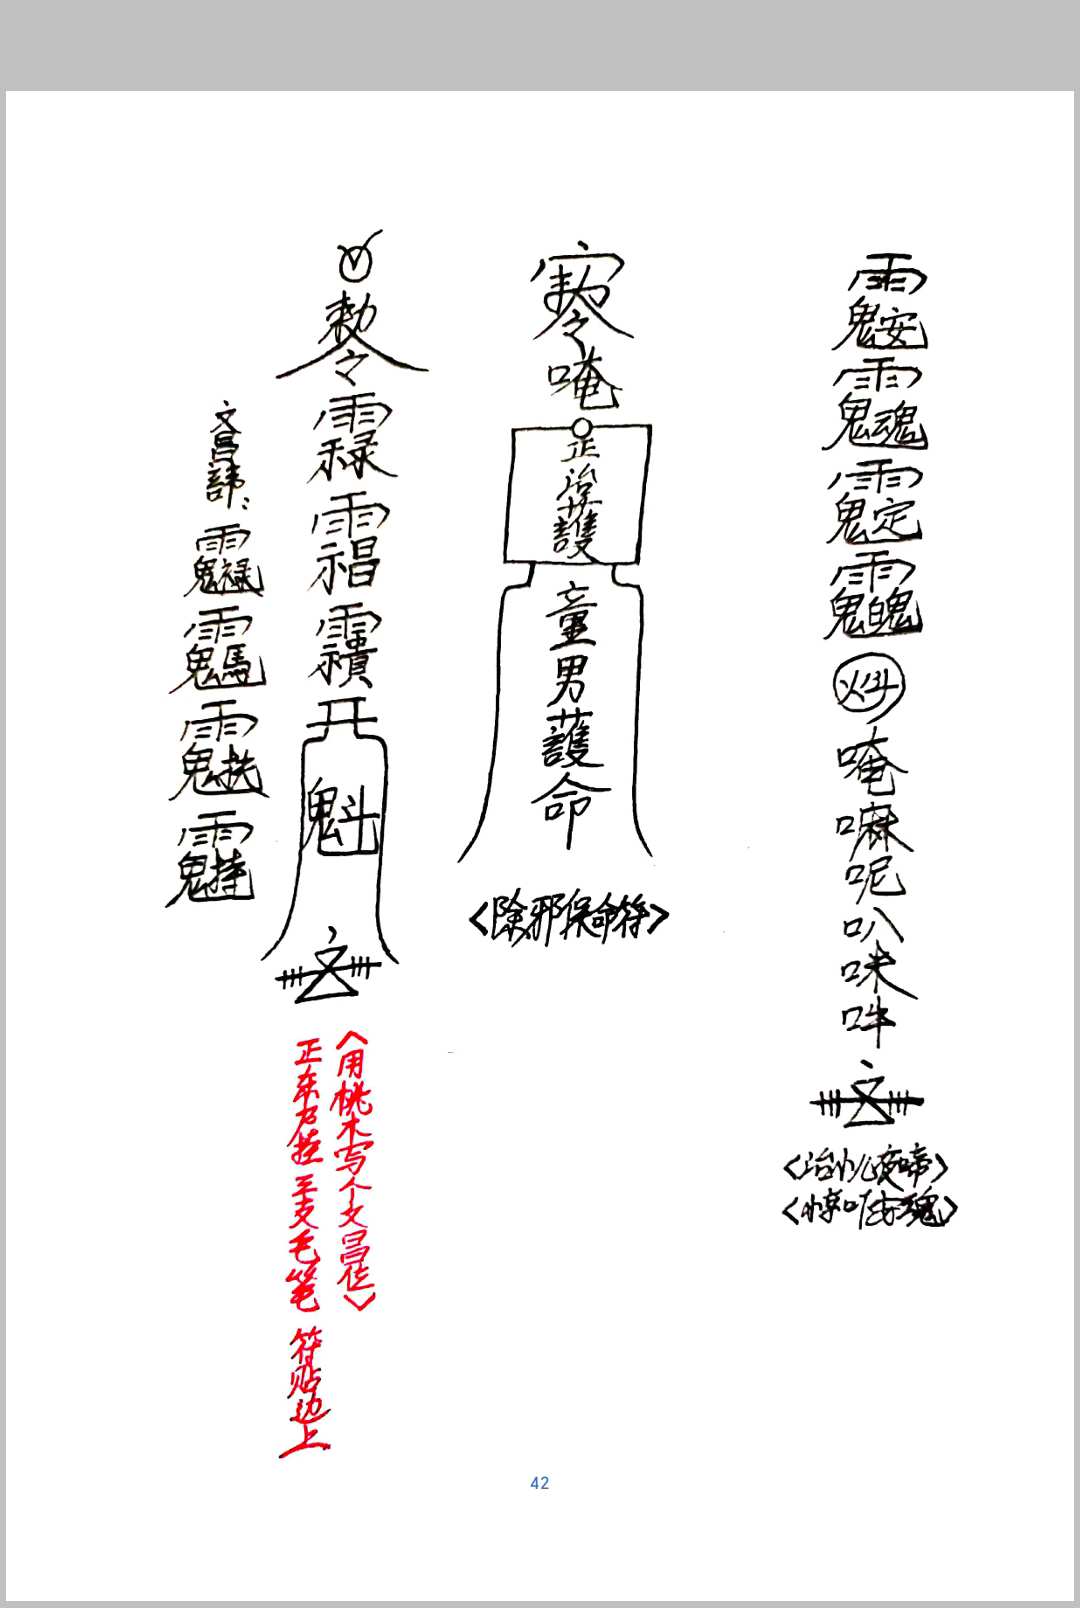 ⿱雨⿺鬼安
⿱雨⿺鬼魂
⿱雨⿺鬼定
⿱雨⿺鬼魄
唵
嘛
呢
叭
咪
吽
<治小儿夜啼>
敕令
唵
正
治
護
童
男
護
命
<除邪保命符>
敕令
⿱雨禄
⿱雨⿰示昌
⿱雨⿰示貴
魁
<用桃木写个文昌位>
正东方挂三支毛笔 符贴边上
文昌諱:
⿱雨⿺鬼禄
⿱雨⿺鬼馬
⿱雨⿺鬼扶
⿱雨⿺鬼持
42